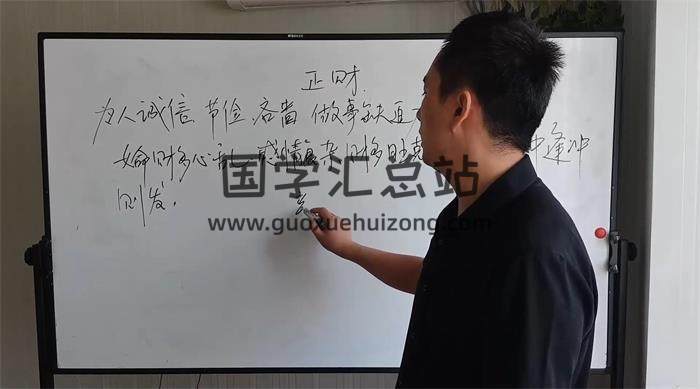 正财
为人诚信 节俭 吝啬 做事缺
女命财多心乱 感情复杂 财多 中逢冲
则发.
国学汇总站
www.guoxuehuizong.com